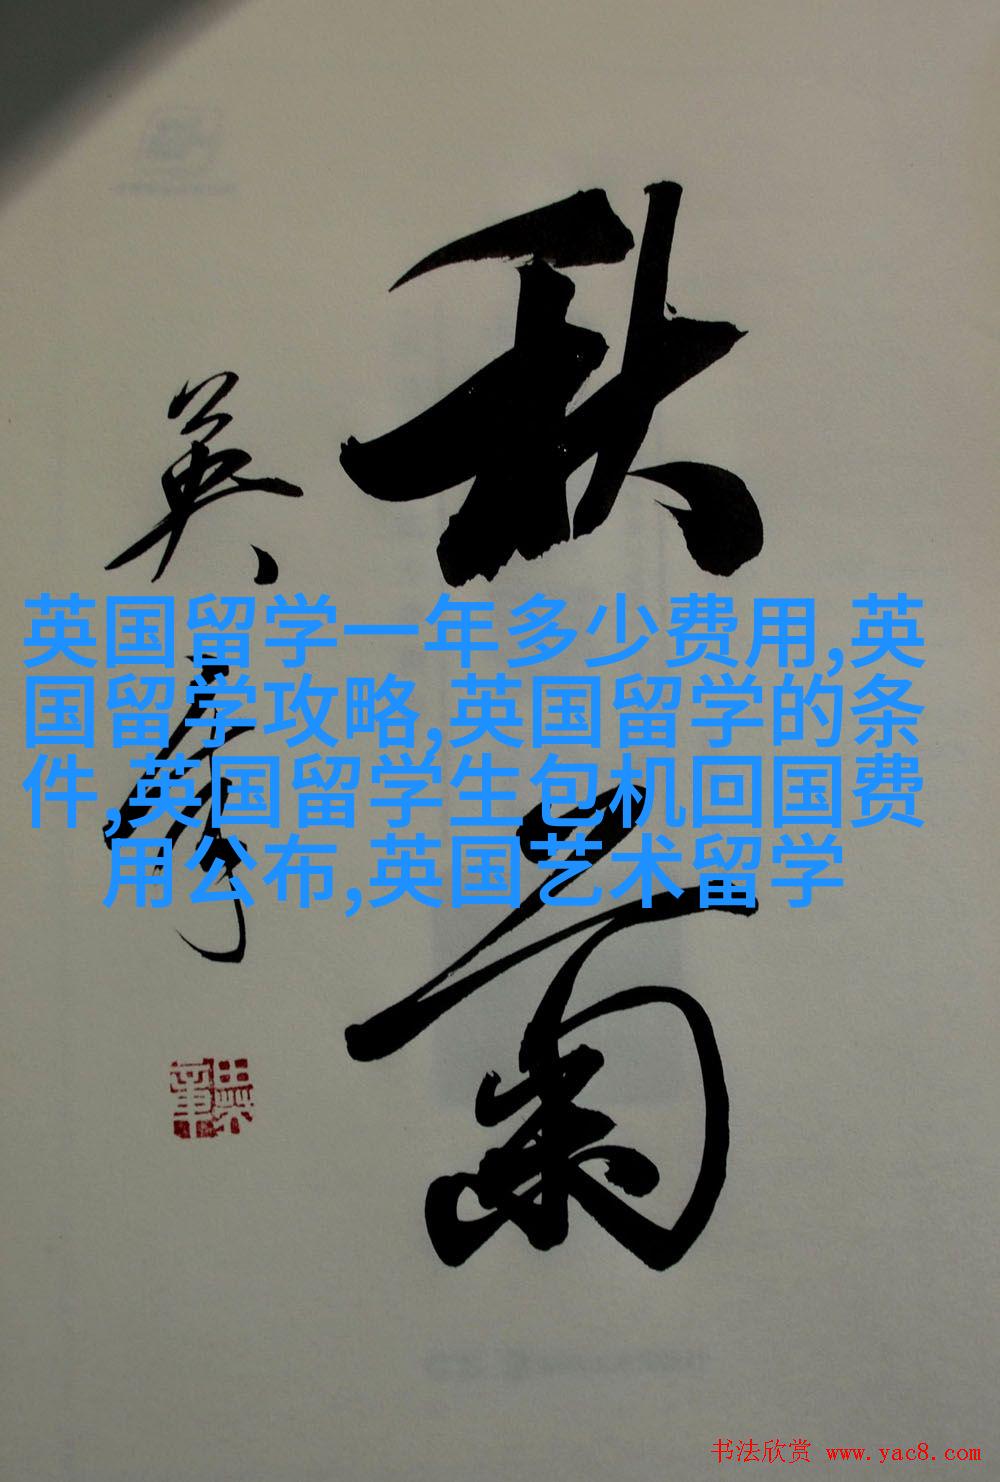 秋菊
英章
田英章
英国留学一年多少费用,英
国留学攻略,英国留学的条
件,英国留学生包机回国费
用公布,英国艺术留学
书法欣赏 www.yac8.com